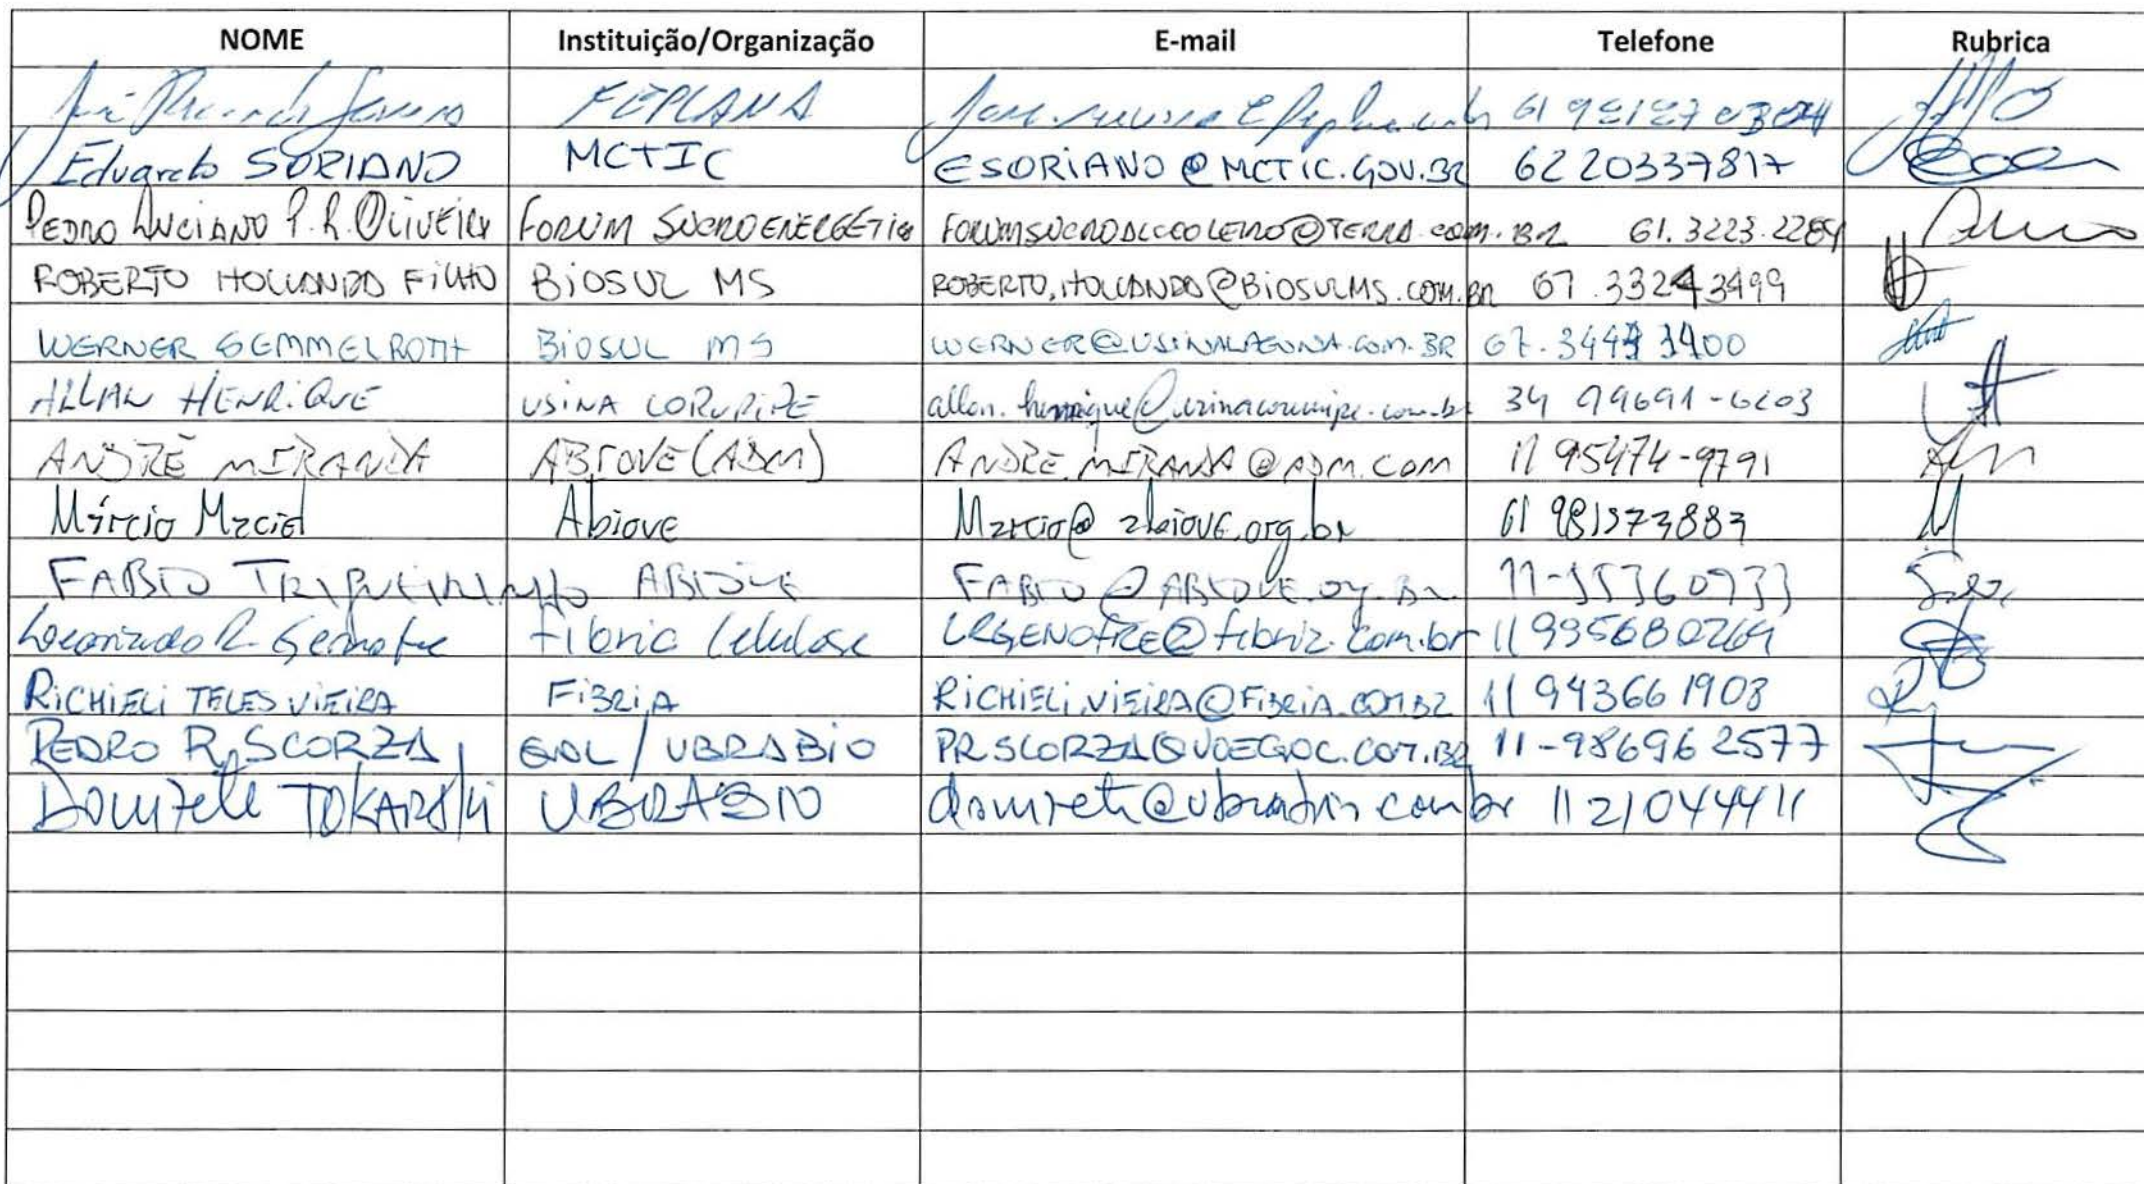 NOME Instituição/Organização E-mail Telefone Rubrica
José FEPLANA 61
Eduardo SORIANO MCTIC ESORIANO@MCTIC.GOV.BR 62 20337817
PEDRO LUCIANO P. R. OLIVEIRA FORUM SUCROENERGÉTICO FORUMSUCROALCOOLEIRO@TERRA.COM.BR 61.3223.2284
ROBERTO HOLLANDA FILHO BIOSUL MS ROBERTO.HOLLANDA@BIOSULMS.COM.BR 67.33243499
WERNER SEMMELROTH BIOSUL MS WERNER@USINALAGUNA.COM.BR
ALLAN HENRIQUE USINA CORURIPE allan.henrique@usinacoruripe.com.br 34 99691-6203
ANDRÉ MIRANDA ABIOVE (ADM) ANDRE.MIRANDA@ADM.COM 11 95474-9791
Márcio Maciel Abiove Marcio@abiove.org.br 61 981373883
FABIO TRIGUEIRINHO ABIOVE FABIO@ABIOVE.org.Br
Leonardo R. Genofre Fibria Celulose LRGENOFRE@fibria.com.br 11 995680269
RICHIELI TELES VIEIRA FIBRIA RICHIELI.VIEIRA@FIBRIA.COM.BR 11 943661908
PEDRO R. SCORZA GOL / UBRABIO PRSCORZA@VOEGOL.COM.BR 11-986962577
Donizete TOKARSKI UBRABIO donizete@ubrabio.com.br 11 21044411